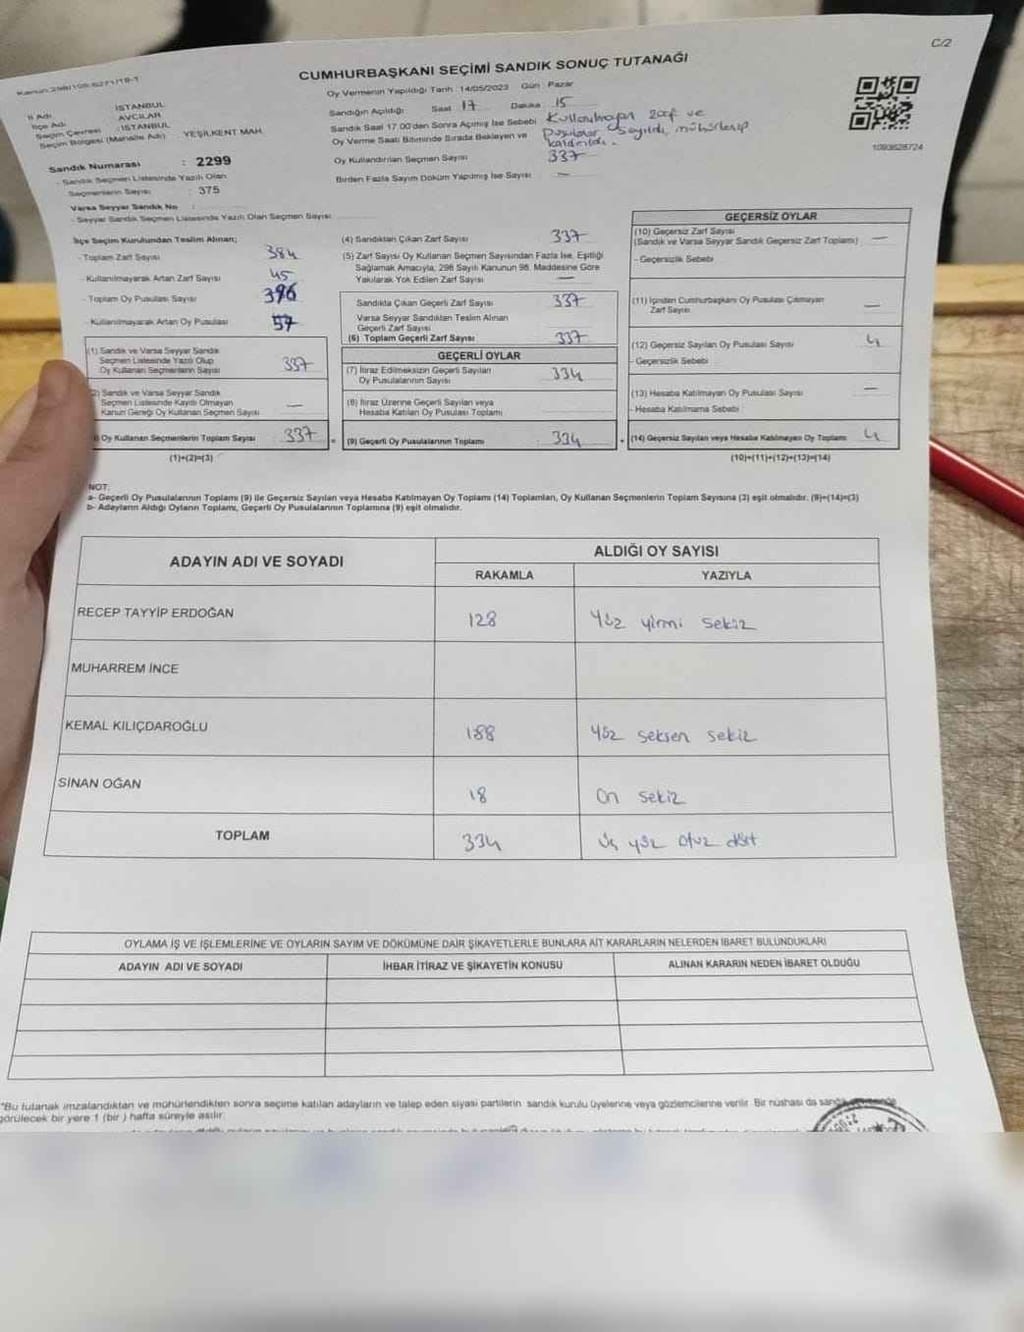 C/2
CUMHURBAŞKANI SEÇİMİ SANDIK SONUÇ TUTANAĞI
İl Adı : İSTANBUL
İlçe Adı : AVCILAR
Seçim Çevresi : İSTANBUL
Seçim Bölgesi (Mahalle Adı) YEŞİLKENT MAH.
Sandık Numarası : 2299
- Sandık Seçmen Listesinde Yazılı Olan
Seçmenlerin Sayısı : 375
Varsa Seyyar Sandık No :
- Seyyar Sandık Seçmen Listesinde Yazılı Olan Seçmen Sayısı
Oy Vermenin Yapıldığı Tarih 14/05/2023 Gün Pazar
Sandığın Açıldığı Saat 17 Dakika 15
Sandık Saat 17.00'den Sonra Açılmış İse Sebebi Kullanılmayan zarf ve
Oy Verme Saati Bitiminde Sırada Bekleyen ve pusulalar sayıldı, mühürlenip
kaldırıldı.
Oy Kullandırılan Seçmen Sayısı 337
Birden Fazla Sayım Döküm Yapılmış İse Sayısı —
1093628724
İlçe Seçim Kurulundan Teslim Alınan;
- Toplam Zarf Sayısı 384
- Kullanılmayarak Artan Zarf Sayısı 45
- Toplam Oy Pusulası Sayısı 396
- Kullanılmayarak Artan Oy Pusulası 57
(1) Sandık ve Varsa Seyyar Sandık
Seçmen Listesinde Yazılı Olup
Oy Kullanan Seçmenlerin Sayısı 337
(2) Sandık ve Varsa Seyyar Sandık
Seçmen Listesinde Kayıtlı Olmayan
Kanun Gereği Oy Kullanan Seçmen Sayısı —
Oy Kullanan Seçmenlerin Toplam Sayısı 337
(1)+(2)=(3)
(4) Sandıktan Çıkan Zarf Sayısı 337
(5) Zarf Sayısı Oy Kullanan Seçmen Sayısından Fazla İse, Eşitliği
Sağlamak Amacıyla, 298 Sayılı Kanunun 98. Maddesine Göre
Yakılarak Yok Edilen Zarf Sayısı —
Sandıkta Çıkan Geçerli Zarf Sayısı 337
Varsa Seyyar Sandıktan Teslim Alınan
Geçerli Zarf Sayısı
(6) Toplam Geçerli Zarf Sayısı 337
GEÇERLİ OYLAR
(7) İtiraz Edilmeksizin Geçerli Sayılan
Oy Pusulalarının Sayısı 334
(8) İtiraz Üzerine Geçerli Sayılan veya
Hesaba Katılan Oy Pusulası Toplamı
= (9) Geçerli Oy Pusulalarının Toplamı 334
GEÇERSİZ OYLAR
(10) Geçersiz Zarf Sayısı
(Sandık ve Varsa Seyyar Sandık Geçersiz Zarf Toplamı) —
- Geçersizlik Sebebi
(11) İçinden Cumhurbaşkanı Oy Pusulası Çıkmayan
Zarf Sayısı —
(12) Geçersiz Sayılan Oy Pusulası Sayısı 4
- Geçersizlik Sebebi
(13) Hesaba Katılmayan Oy Pusulası Sayısı —
- Hesaba Katılmama Sebebi
+ (14) Geçersiz Sayılan veya Hesaba Katılmayan Oy Toplamı 4
(10)+(11)+(12)+(13)=(14)
NOT:
a- Geçerli Oy Pusulalarının Toplamı (9) ile Geçersiz Sayılan veya Hesaba Katılmayan Oy Toplamı (14) Toplamları, Oy Kullanan Seçmenlerin Toplam Sayısına (3) eşit olmalıdır. (9)+(14)=(3)
b- Adayların Aldığı Oyların Toplamı, Geçerli Oy Pusulalarının Toplamına (9) eşit olmalıdır.
ADAYIN ADI VE SOYADI
ALDIĞI OY SAYISI
RAKAMLA YAZIYLA
RECEP TAYYİP ERDOĞAN 128 Yüz yirmi sekiz
MUHARREM İNCE
KEMAL KILIÇDAROĞLU 188 Yüz seksen sekiz
SİNAN OĞAN 18 On sekiz
TOPLAM 334 Üç yüz otuz dört
OYLAMA İŞ VE İŞLEMLERİNE VE OYLARIN SAYIM VE DÖKÜMÜNE DAİR ŞİKAYETLERLE BUNLARA AİT KARARLARIN NELERDEN İBARET BULUNDUKLARI
ADAYIN ADI VE SOYADI İHBAR İTİRAZ VE ŞİKAYETİN KONUSU ALINAN KARARIN NEDEN İBARET OLDUĞU
"Bu tutanak imzalandıktan ve mühürlendikten sonra seçime katılan adayların ve talep eden siyasi partilerin sandık kurulu üyelerine veya gözlemcilerine verilir. Bir nüshası da
görülecek bir yere 1 (bir ) hafta süreyle asılır.